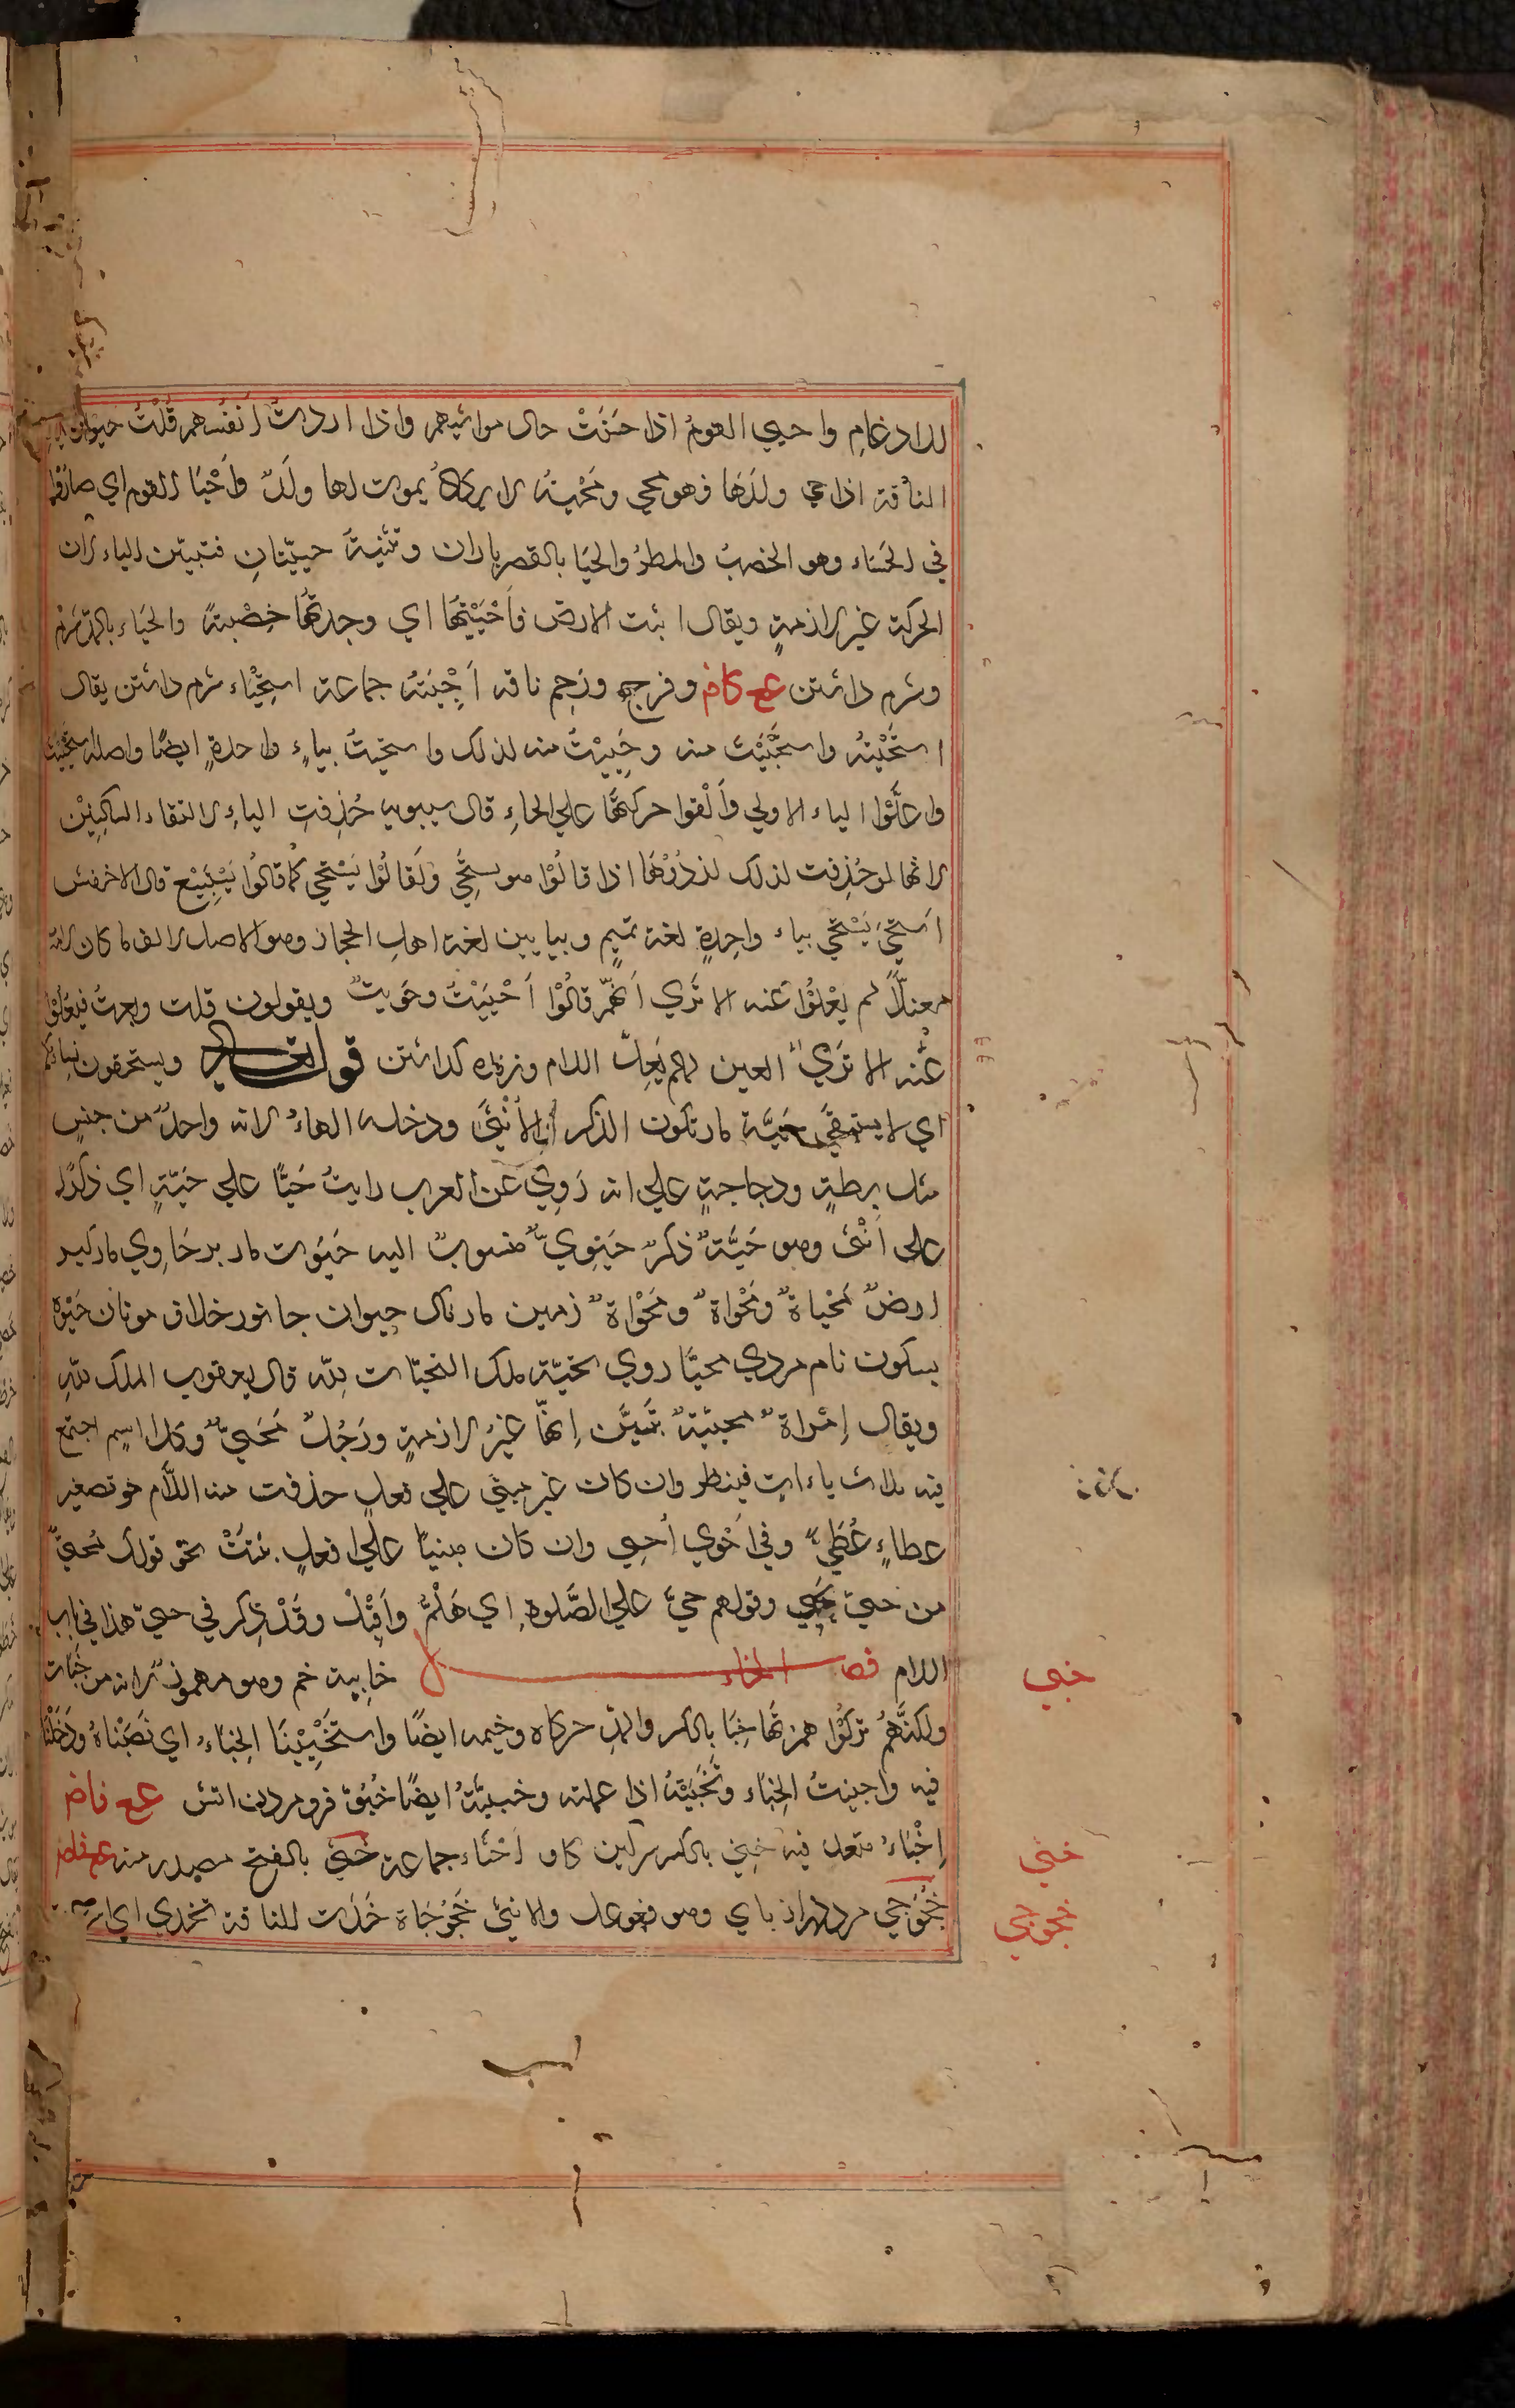 للادغام واحيي القوم اذا حَسُنَتْ حال مواشيهم واذا اردتَ اَنفُسهم قُلْتُ حيوا
الناقة اذا حي ولدَهَا فهو محي ومُحْيَيةٌ لا يكادُ يموت لها ولَدٌ وَاَحْيَا القوم اي صارُوا
في الحَياء وهو الخصبُ والمطرُ والحَيَا بالقصر باران وتثنيةُ حييّانِ فتبيّن الياء لان
الحركة غير لازمةٍ ويقال اتيت الارض فَاَحْيَيْتُهَا اي وجدتُّهَا خِصْبَةً والحَيَاء بالمد شرم
وشرم داشتن عع كاف وفرج ورَحِم ناقه اَحْيِيَةٌ جماعة اسْتِحْيَاء شرم داشتن يقال
اِسْتَحْيَيْتُهُ واستَحْيَيْتُ منه وحَيِيْتُ منه كذلك واستحيتُ بياءٍ واحدةٍ ايضًا واصله استَحْيَيْتُ
واعَلُّوْا الياء الاولي وَاَلْقوا حركتهَا علي الحاءِ قال سيبويه حُذِفتِ الياءِ لالتقاء الساكنَيْن
لانها لو حُذِفت لذلك لردُّوْهَا اذا قالُوْا هو يستَحِي ولَقَالُوْا يَسْتَحْي كما قالُوا يَسْتَبِيْع قال الاخفش
اِسْتَحَيَ يَسْتَحْي بياء واحِدةٍ لغة تميم وبيايين لغة اهل الحجاز وهو الاصل لان ما كان لامه
معتلّاً لم يُعْلُوْا عَينه الا تَري اَنَّهُمْ قالُوْا اَحْيَيْتُ وحَوَيتُ ويقولون قلت وبعتُ فيُعلوْنَ
عَينه الا تَري العين لم يَعِلّ اللام وزنده كذاشتن قوله تعالى ويستحيون نساءكم
اي لا يستبقي حَيَّة مار تكون الذكر والاُنْثَي ودخله الهاءُ لانه واحدٌ من جنسٍ
مثل بطةٍ ودجاجةٍ علي انه رَوِي عن العرب رايتُ حَيّاً علي حَيَّةٍ اي ذكرًا
على اُنْثى وهو حَيَّةٌ ذكرٌ حَيَوِيٌّ منسوبٌ اليه حَيُّوت مار نر حَاوِي ماركير
ارضٌ مَحْياةٌ ومَحْواةٌ ومُحْوَاةٌ زمين مارناك حيوان جانور خلاف موتان حَيْوة
بسكون نام مردي محيّا روي التحيّة ملك التحيّات لِلّه قال يعقوب الملك للهِ
ويقال اِمْراةٌ محييَةٌ تبيَّن اِنَّهَا غيرُ لازمةٍ ورَجُلٌ مُحَييٌّ وكل اسم اجتمع
فيه ثلاث ياءاتٍ فينظر وان كان غير مبنيٍّ علي فعلٍ حذفت منه اللَّام نحو تصغير
عطاءٍ عُطَيٌّ وفي اَحْوي اُحيي وان كان مبنيًّا علي فعلٍ ثبتَتْ نحو قولك مُحَييٌّ
من حييَ يحيي وقولهم حَيَّ علي الصَّلوةِ اي هَلُمَّ واَقْبِلْ وقَدْ ذكر في حيي هذا في باب
اللام فصل الخاء خابيه خم وهو مهموزٌ لانه من خَبَات
ولكنَّهُمْ تركُوْا همزتَها خِبَا بالكسر والمدّ خركاه وخيمه ايضًا واستَخْبَيْنَا الخِبَاءَ اي نَصَبْنَاهُ ودَخَلْنَا
فيه واخبيتُ الخِبَاء وتَخَبَّيْتُهُ اذا عملته وخبيتُهُ ايضًا خُبُوٌّ فرو مردن اتش عع فاض
اِخْبَاءٌ متعد فيه خِثي بالكسر سركين كاو اَخْثَاء جماعة خَثْي بالفتح مصدر منه عع فاض
خَجَوْجَي مرد دراز باي وهو فعوعل والانثي خَجَوْجَاة خَدَت للناقة تخدي اي
خبي
خثي
خجوجي